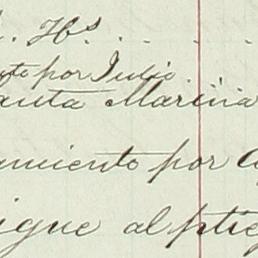 . Hs. . . .
nto por Julio
anta Marina
amiento por
igue al